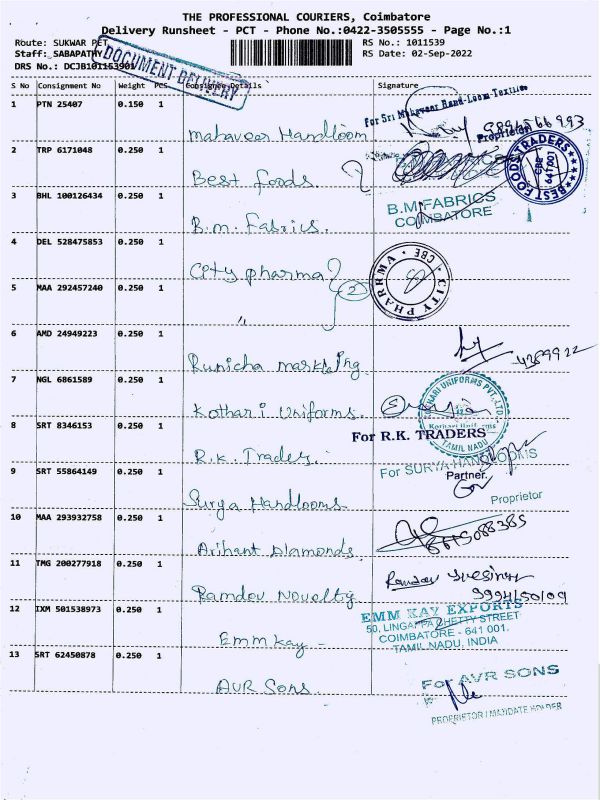 THE PROFESSIONAL COURIERS, Coimbatore
Delivery Runsheet - PCT - Phone No.:0422-3505555 - Page No.:1
Route: SUKWAR PET
RS No.: 1011539
Staff: SABAPATHY
RS Date: 02-Sep-2022
DRS No.: DCJB101153901
DOCUMENT DELIVERY
S No Consignment No Weight PCS Consignee Details Signature
1 PTN 25407 0.150 1
Mahaveer Handloom
For Sri Mahaveer Hand-Loom Textiles
Proprietor
2 TRP 6171048 0.250 1
Best foods.
BEST FOOD TRADERS
CBE
641 001
3 BHL 100126434 0.250 1
B.M. Fabrics.
B.M.FABRICS
COIMBATORE
4 DEL 528475853 0.250 1
City pharma
CITY PHARRMA
CBE
5 MAA 292457240 0.250 1
"
2
6 AMD 24949223 0.250 1
Runicha marketing
7 NGL 6861589 0.250 1
Kothari Uniforms.
KOTHARI UNIFORMS PVT. LTD.
Kothari Uniforms
TAMIL NADU
8 SRT 8346153 0.250 1
R.K. Trades.
For R.K. TRADERS
Partner.
9 SRT 55864149 0.250 1
Surya Handlooms
For SURYA HANDLOOMS
Proprietor
10 MAA 293932758 0.250 1
Arihant Diamonds.
11 TMG 200277918 0.250 1
Ramdev Novelty
Ramdev
12 IXM 501538973 0.250 1
Emmkay -
EMM KAY EXPORTS
50, LINGAPPA CHETTY STREET
COIMBATORE - 641 001.
TAMIL NADU, INDIA
13 SRT 62450878 0.250 1
AVR Sons.
For AVR SONS
PROPRIETOR / MANDATE HOLDER